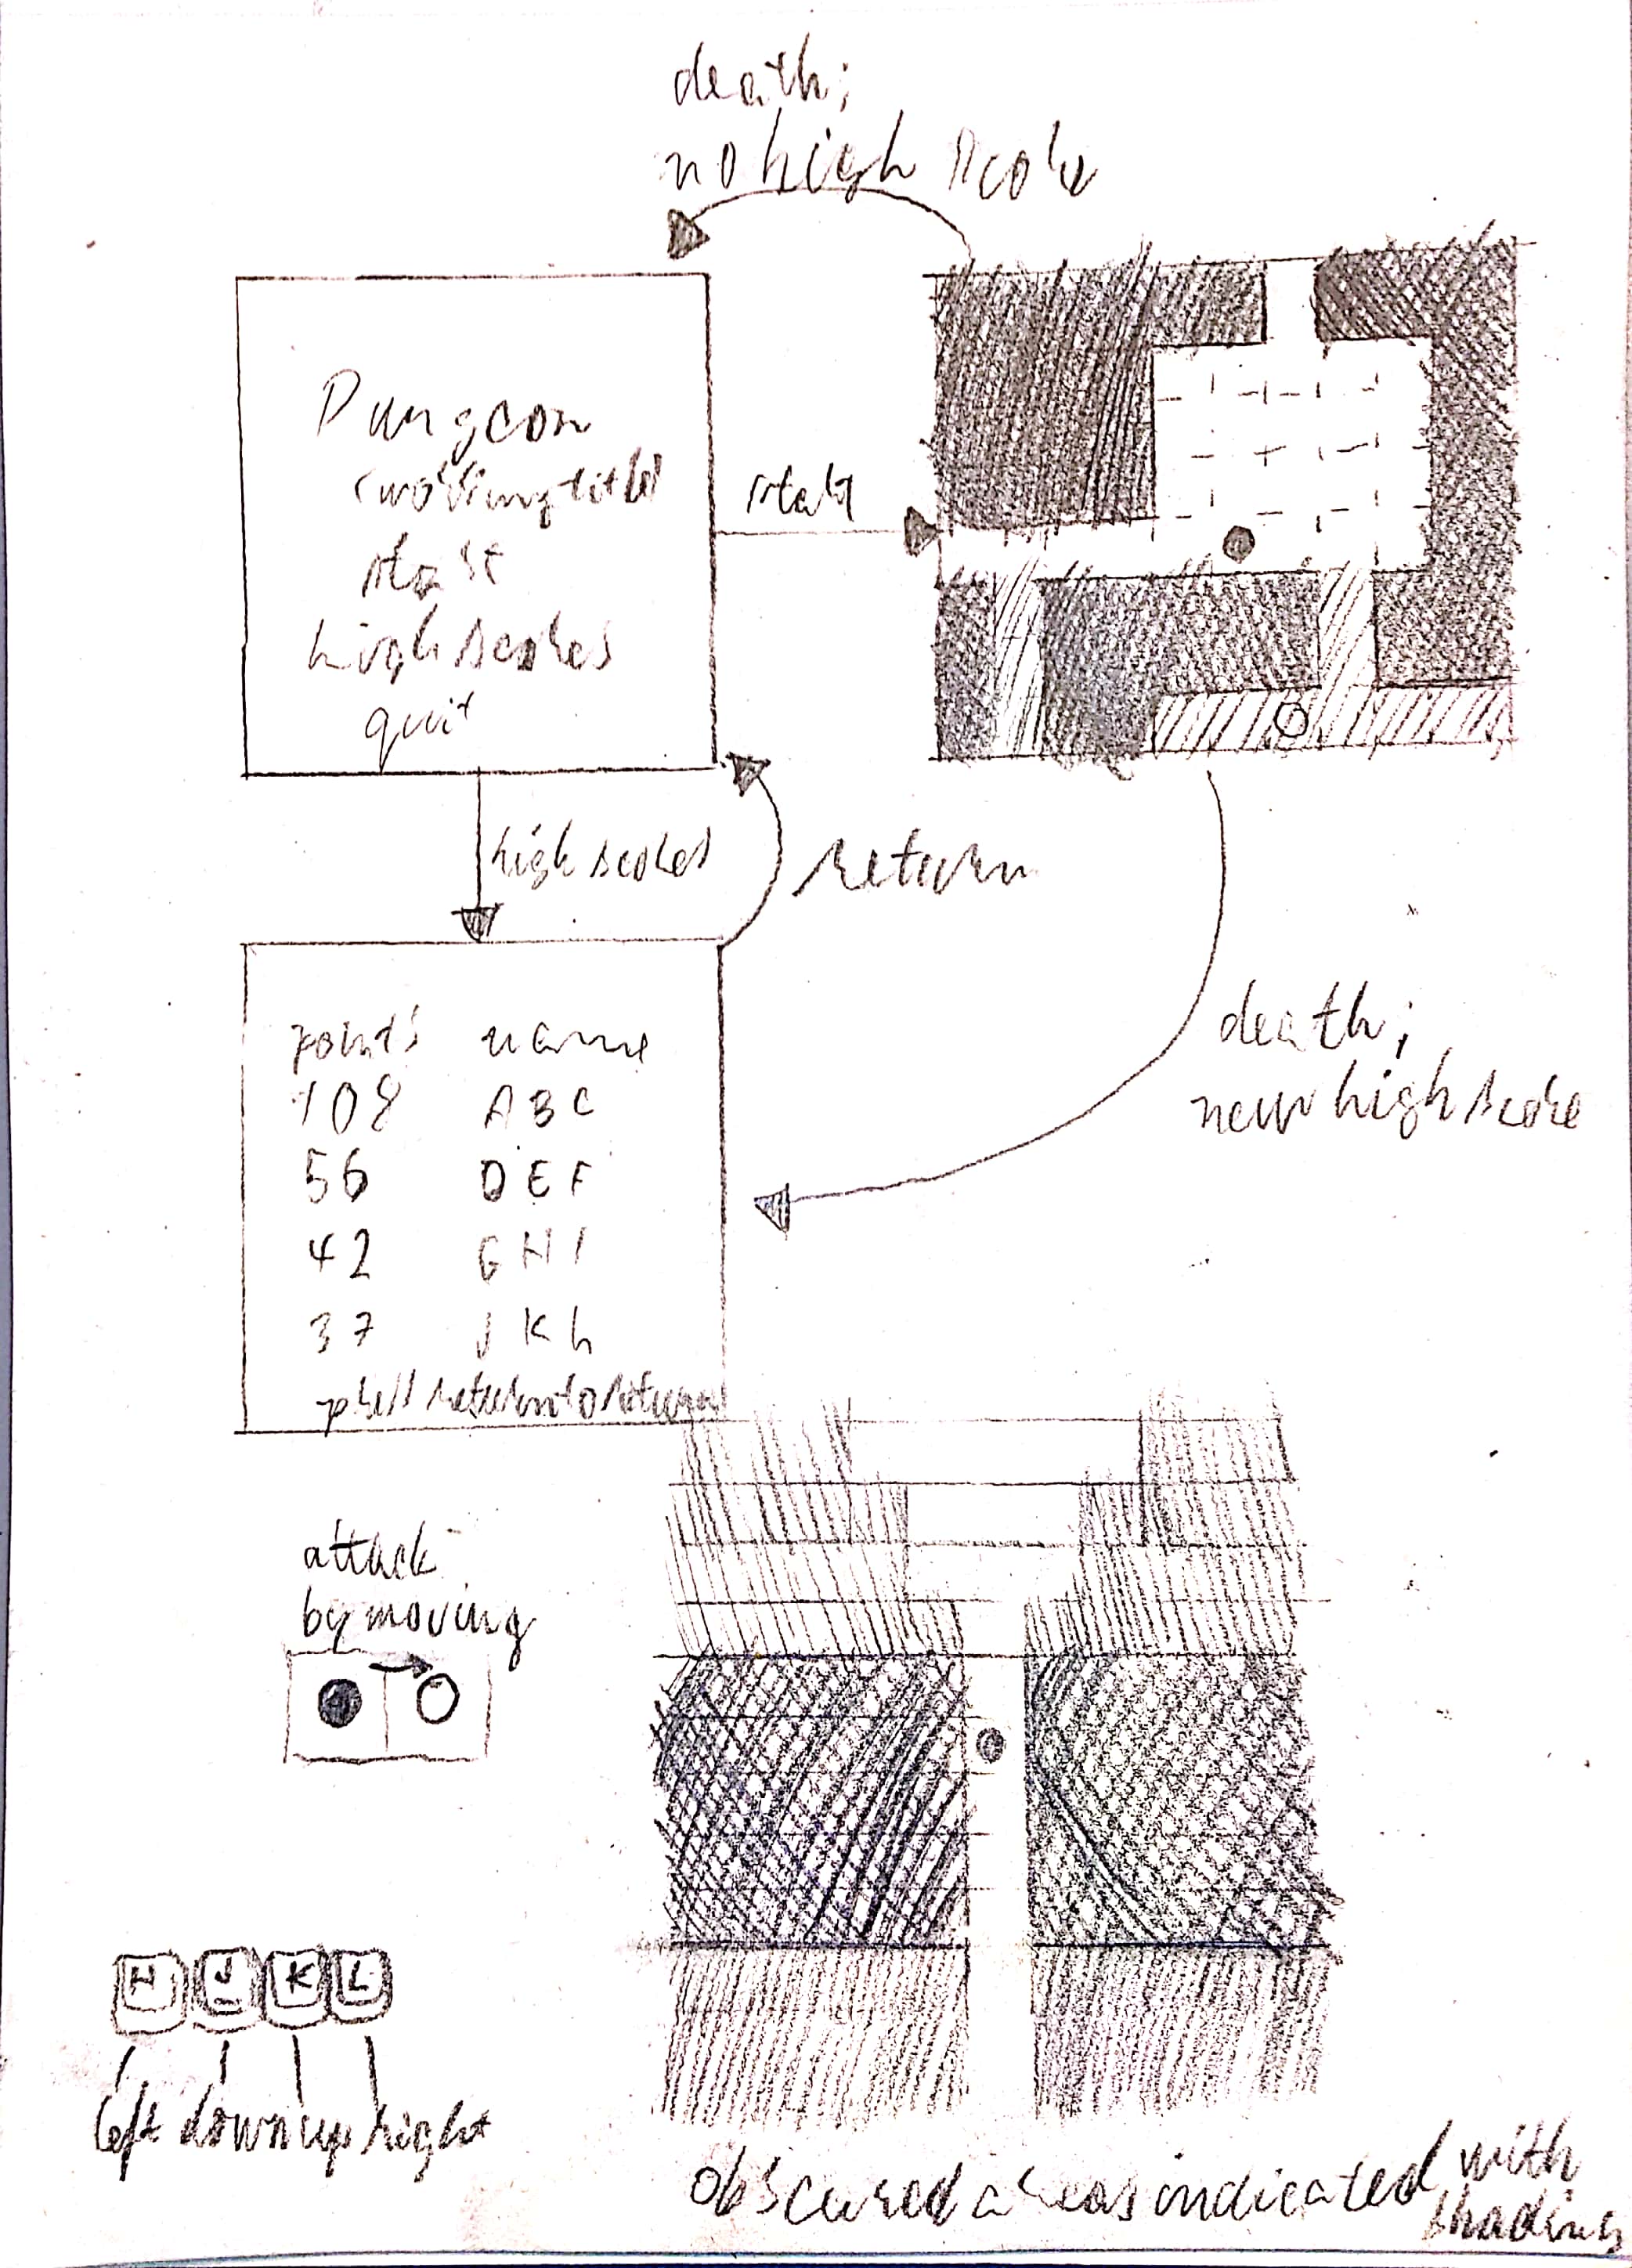 death;
no high score
Dungeon
(working title)
start
high scores
quit
start
high scores
return
points name
108 ABC
56 DEF
42 GHI
37 JKL
press return to return
death;
new high score
attack
by moving
H J K L
left down up right
obscured areas indicated with
shading